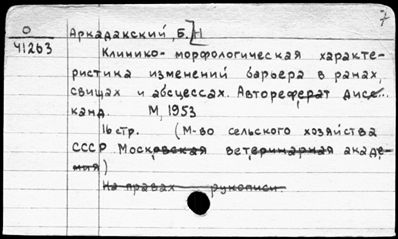 7
О Аркадакский, Б. Н
41263
Клинико-морфологическая характе-
ристика изменений барьера в ранах,
свищах и абсцессах. Автореферат дисс...
канд. М, 1953
16 стр. (М-во сельского хозяйства
СССР Московская ветеринарная акаде-
мия)
На правах рукописи.